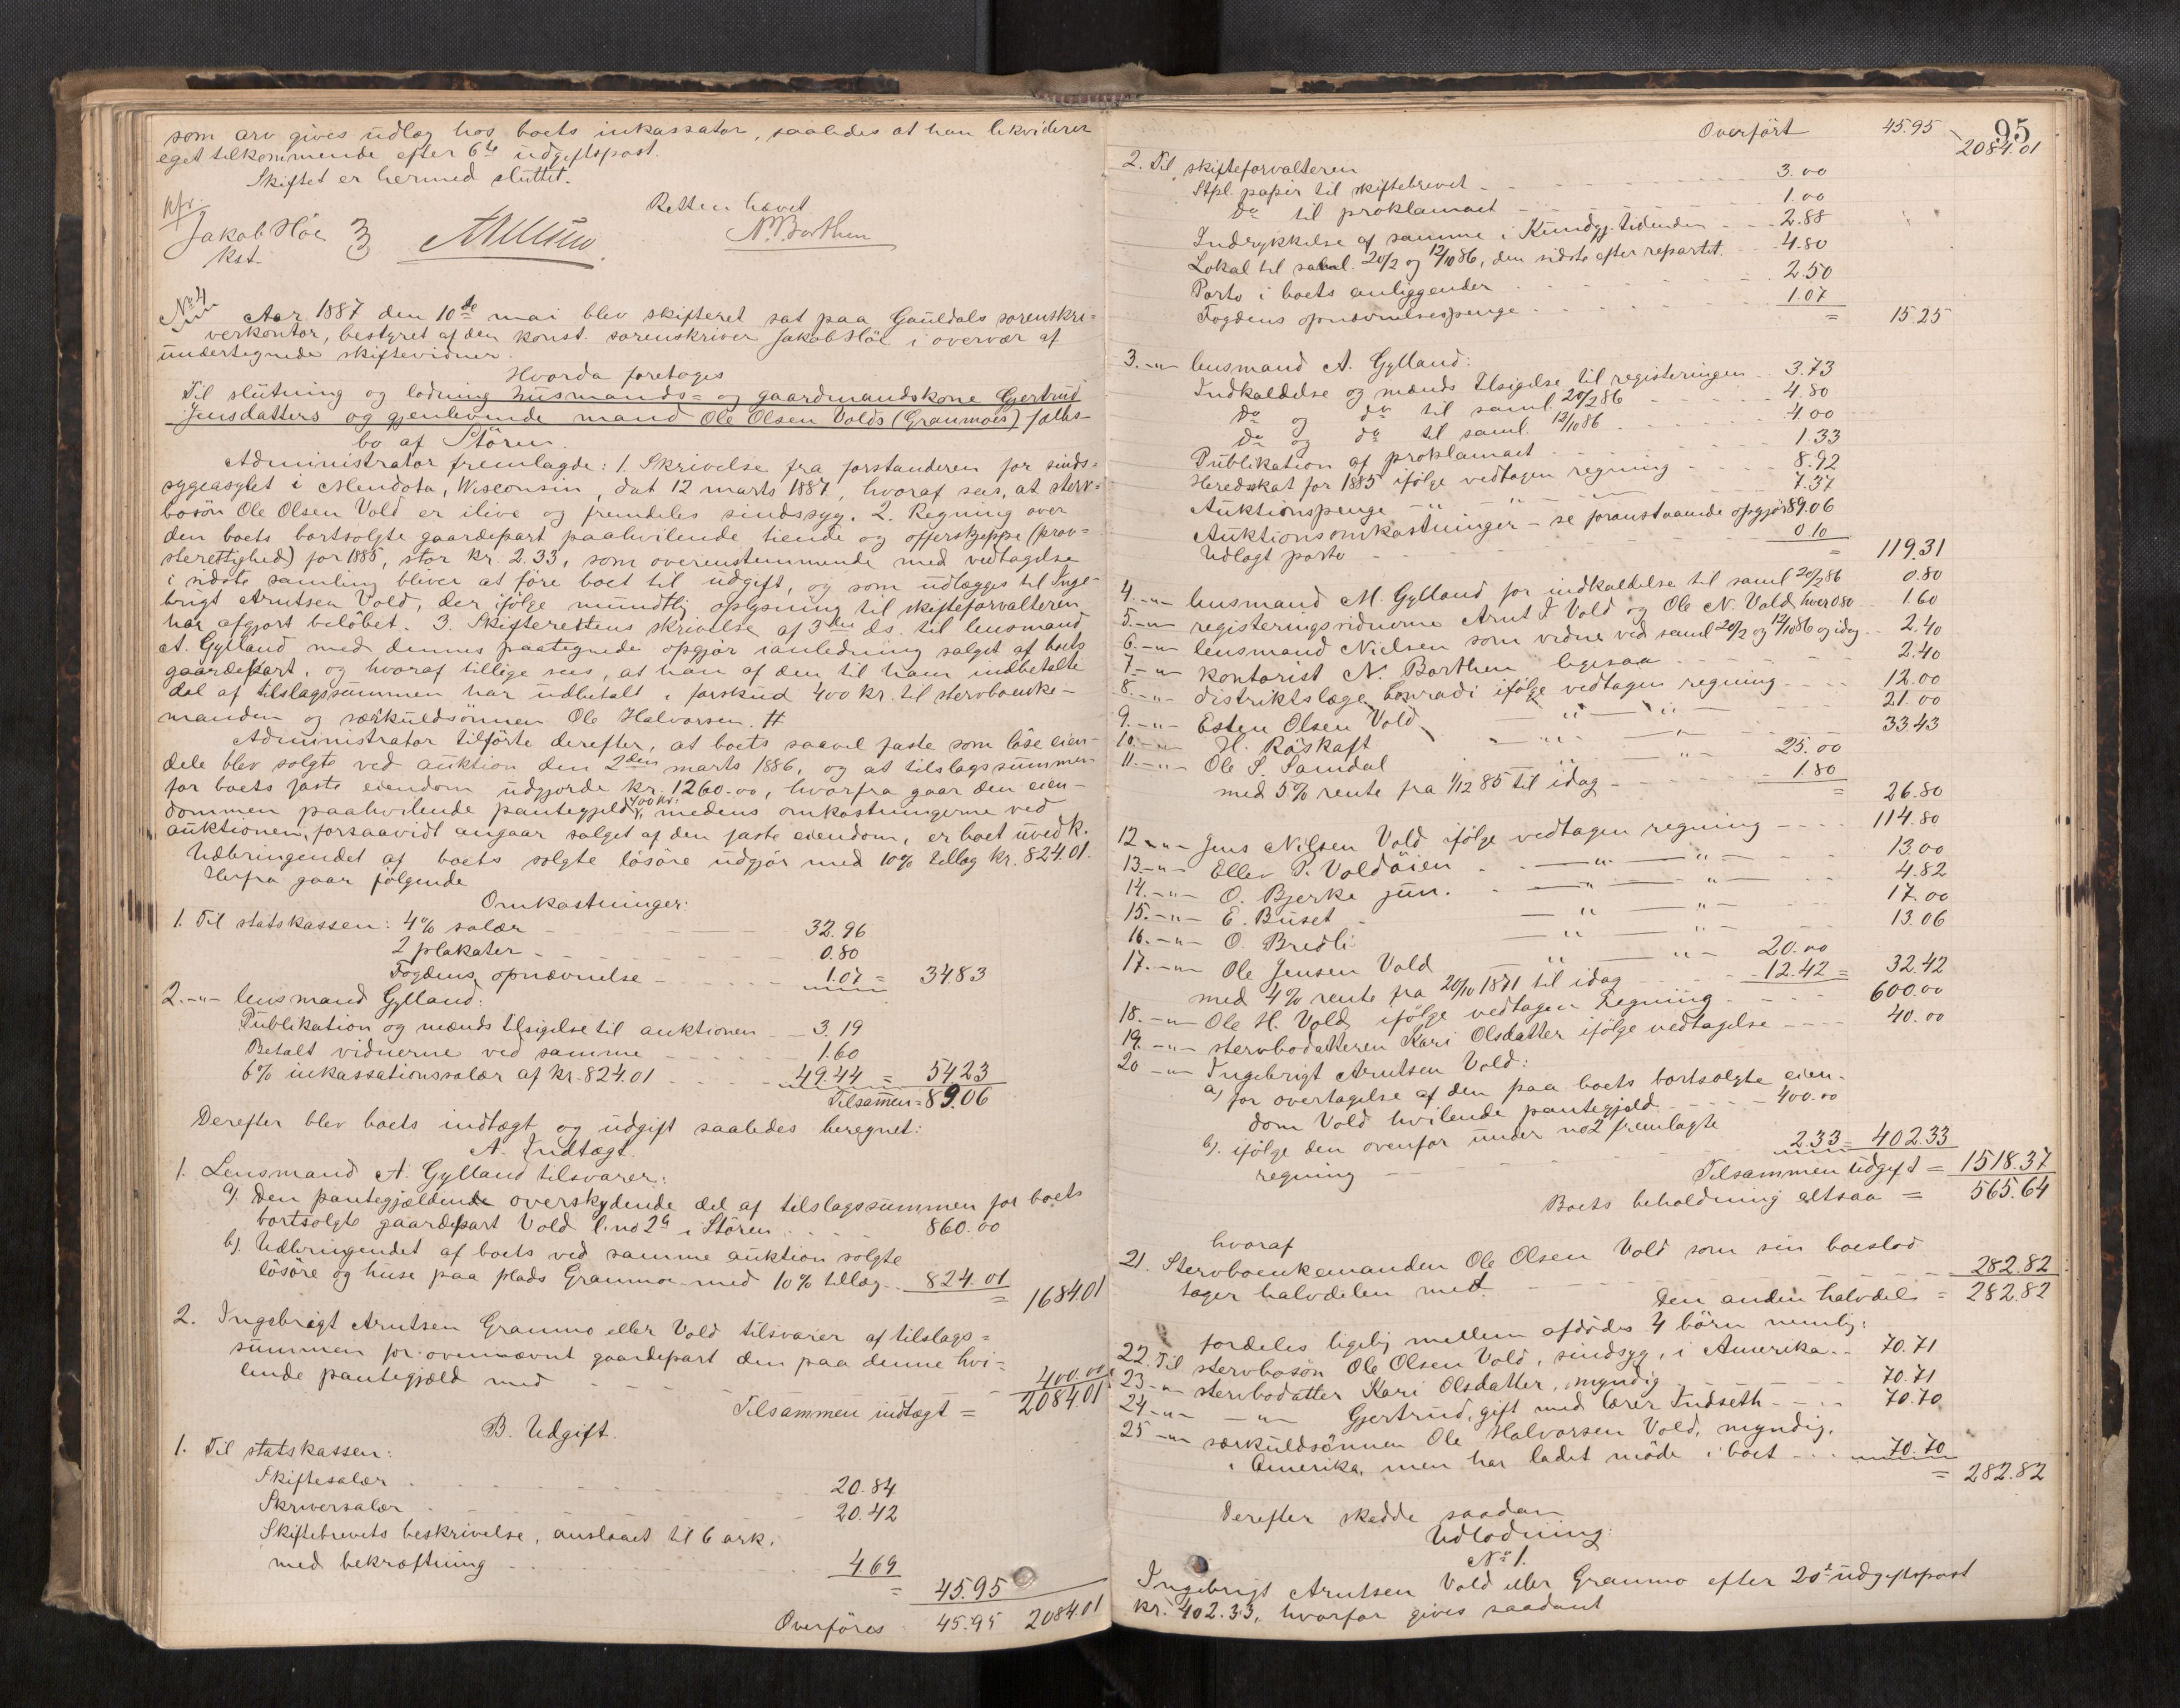 som arv gives udlæg hos boets inkassator, saaledes at han likviderer
eget tilkommende efter 6te udgiftspost.
Skiftet er hermed sluttet.
Retten hævet
Jakob Höe
kst.
N. Borthen
No 4
Aar 1887 den 10de mai blev skifteret sat paa Gauldals sorenskri-
verkontor, bestyret af den konst. sorenskriver Jakob Höe i overvær af
undertegnede skiftevidner.
Hvorda foretoges
Til slutning og lodning husmands- og gaardmandskone Gjertrud
Jensdatters og gjenlevende mand Ole Olsen Volds (Granmoes) fælles-
bo af Stören.
Administrator fremlagde: 1. Skrivelse fra forstanderen for sinds-
sygeasylet i Mendota, Wisconsin, dat 12 marts 1887, hvoraf sees, at sterv-
bosön Ole Olsen Vold er ilive og fremdeles sindssyg. 2. Regning over
den boets bortsolgte gaardepart paahvilende tiende og offerskjeppe (prov-
sterettighed) for 1885, stor kr. 2.33, som overensstemmende med vedtagelse
i sidste samling bliver at före boet til udgift, og som udlægges til Inge-
brigt Arntsen Vold, der ifölge mundtlig oplysning til skifteforvalteren
har afgjort belöbet. 3. Skifterettens skrivelse af 3die ds. til lensmand
A. Gylland med dennes paategnede opgjör ianledning salget af boets
gaardepart, og hvoraf tillige sees, at han af den til ham indbetalte
del af tilslagssummen har udbetalt i forskud 400 kr. til stervboenke-
manden og særkuldsönnen Ole Halvorsen. #
Administrator tilförte derefter, at boets saavel faste som löse eien-
dele blev solgte ved auktion den 2den marts 1886, og at tilslagssummen
for boets faste eiendom udgjorde kr. 1260.00, hvorfra gaar den eien-
dommen paahvilende pantegjeld 400 kr., medens omkostningerne ved
auktionen, forsaavidt angaar salget af den faste eiendom, er boet uvedk.
Udbringendet af boets solgte lösöre udgjör med 10% tillæg kr. 824.01.
Herfra gaar fölgende
Omkostninger:
1. Til statskassen: 4% salær 32.96
2 plakater 0.80
Fogdens opnævnelse 1.07 = 34 83
2. -"- lensmand Gylland:
Publikation og mænds tilsigelse til auktionen 3.19
Betalt vidnerne ved samme 1.60
6% inkassationssalær af kr. 824.01 49.44 = 54 23
Tilsammen = 89.06
Derefter blev boets indtægt og udgift saaledes beregnet:
A. Indtægt.
1. Lensmand A. Gylland tilsvarer:
a). Den pantegjælden overskydende del af tilslagssummen for boets
bortsolgte gaardepart Vold l.no 2a i Stören 860.00
b). Udbringendet af boets ved samme auktion solgte
lösöre og huse paa plads Granmo med 10% tillæg 824.01
= 1684.01
2. Ingebrigt Arntsen Granmo eller Vold tilsvarer af tilslags-
summen for ovennævnt gaardepart den paa denne hvi-
lende pantegjæld med 400.00
Tilsammen indtægt = 2084.01
B. Udgift.
1. Til statskassen:
Skiftesalær 20.84
Skriversalær 20.42
Skiftebrevets beskrivelse, anslaaet til 6 ark,
med bekræftning 4.69
= 45.95
Overföres 45.95 2084.01
95
Overfört 45.95 2084.01
2. Til skifteforvalteren
Stpl. papir til skiftebrevet 3.00
do til proklamaet 1.00
Indrykkelse af samme i Kundgj. tidenden 2.88
Lokal til saml. 20/2 og 12/10 86, den sidste efter repartit. 4.80
Porto i boets anliggender 2.50
Fogdens opnævnelsespenge 1.07
= 15.25
3. -"- lensmand A. Gylland:
Indkaldelse og mænds tilsigelse til registeringen 3.73
do og do til saml. 20/2 86 4.80
do og do til saml. 12/10 86 4.00
Publikation af proklamaet 1.33
Heredsskat for 1885 ifölge vedtagen regning 8.92
Auktionspenge -"- 7.37
Auktionsomkostninger – se foranstaaende opgjör 89.06
Udlagt porto 0.10
= 119.31
4. -"- lensmand M. Gylland for indkaldelse til saml 20/2 86 0.80
5. -"- registeringsvidnerne Arnt I Vold og Ole N. Vold hver 0.80 1.60
6. -"- lensmand Nielsen som vidne ved saml 20/2 og 12/10 86 og idag 2.40
7. -"- kontorist N. Borthen ligesaa 2.40
8. -"- distriktslæge Conradi ifölge vedtagen regning 12.00
9. -"- Esten Olsen Vold -"- -"- 21.00
10. -"- H. Röskaft -"- -"- 33.43
11. -"- Ole S. Samdal -"- 25.00
med 5% rente fra 1/12 85 til idag 1.80
= 26.80
12. -"- Jens Nilsen Vold ifölge vedtagen regning 114.80
13. -"- Ellev P. Voldöien -"- -"- 13.00
14. -"- O. Bjerke jun. -"- -"- 4.82
15. -"- E. Buset -"- -"- 17.00
16. -"- O. Bredli -"- -"- 13.06
17. -"- Ole Jensen Vold -"- 20.00
med 4% rente fra 20/10 1871 til idag 12.42 = 32.42
18. -"- Ole H. Vold, ifölge vedtagen regning 600.00
19. -"- stervbodatteren Kari Olsdatter ifölge vedtagelse 40.00
20 -"- Ingebrigt Arntsen Vold:
a) for overtagelse af den paa boets bortsolgte eien-
dom Vold hvilende pantegjæld 400.00
b). ifölge den ovenfor under no 2 fremlagte
regning 2.33 = 402.33
Tilsammen udgift = 1518.37
Boets beholdning altsaa = 565.64
hvoraf
21. Stervboenkemanden Ole Olsen Vold som sin boeslod
tager halvdelen med 282.82
Den anden halvdel = 282.82
fordeles ligelig mellem afdödes 4 börn nemlig:
22. Til stervbosön Ole Olsen Vold, sindsyg, i Amerika 70.71
23 -"- stervbodatter Kari Olsdatter, myndig 70.71
24 -"- -"- Gjertrud, gift med lærer Indseth 70.70
25 -"- særkuldsönnen Ole Halvorsen Vold, myndig,
i Amerika, men har ladet möde i boet 70.70
= 282.82
Derefter skedde saadan
Udlodning:
No 1.
Ingebrigt Arntsen Vold eller Granmo efter 20de udgiftspost
kr. 402.33, hvorfor gives saadant